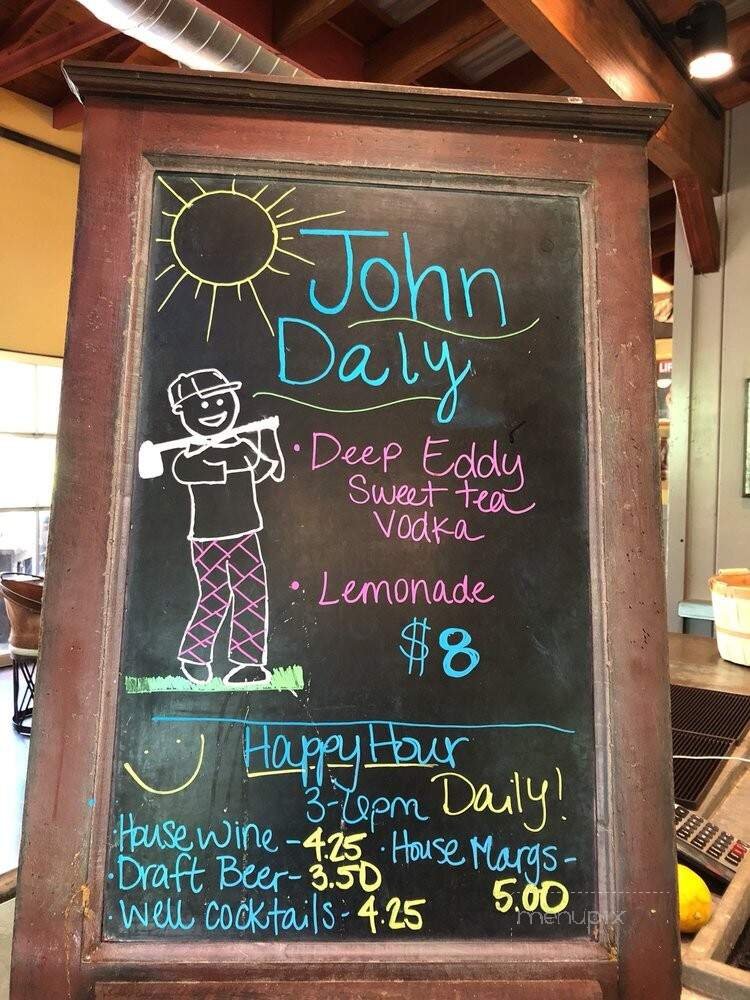 John
Daly
• Deep Eddy
Sweet tea
Vodka
• Lemonade
$8
Happy Hour
3-6pm Daily!
• House wine - 4.25
• Draft Beer - 3.50
• Well cocktails - 4.25
• House Margs -
5.00
menupix